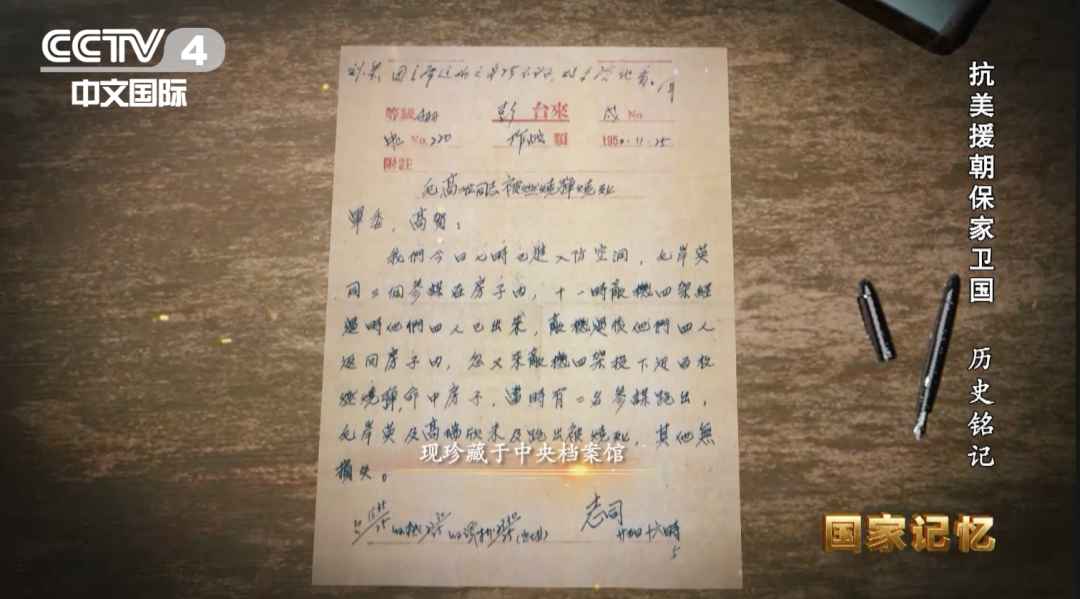 CCTV 4
中文国际
抗美援朝保家卫国 历史铭记
等級 彭台來 No.
No. 220 類 1950.11.25
附註
毛高兩同志被燃燒彈燒死
軍委，高賀：
我們今日七時已進入防空洞，毛岸英
同三個參謀在房子內，十一時敵機四架經
過時他們四人已出來，敵機過後他們四人
返回房子內，忽又來敵機四架投下近百枚
燃燒彈，命中房子，當時有二名參謀跑出，
毛岸英及高瑞欣未及跑出被燒死，其他無
損失。
现珍藏于中央档案馆
志司
十六時
国家记忆